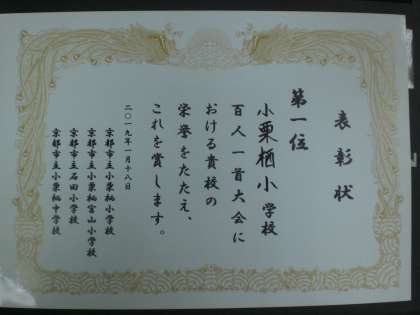 表彰状
第一位
小栗栖小学校
百人一首大会に
おける貴校の
栄誉をたたえ、
これを賞します。
二〇一九年一月十八日
京都市立小栗栖小学校
京都市立小栗栖宮山小学校
京都市立石田小学校
京都市立小栗栖中学校